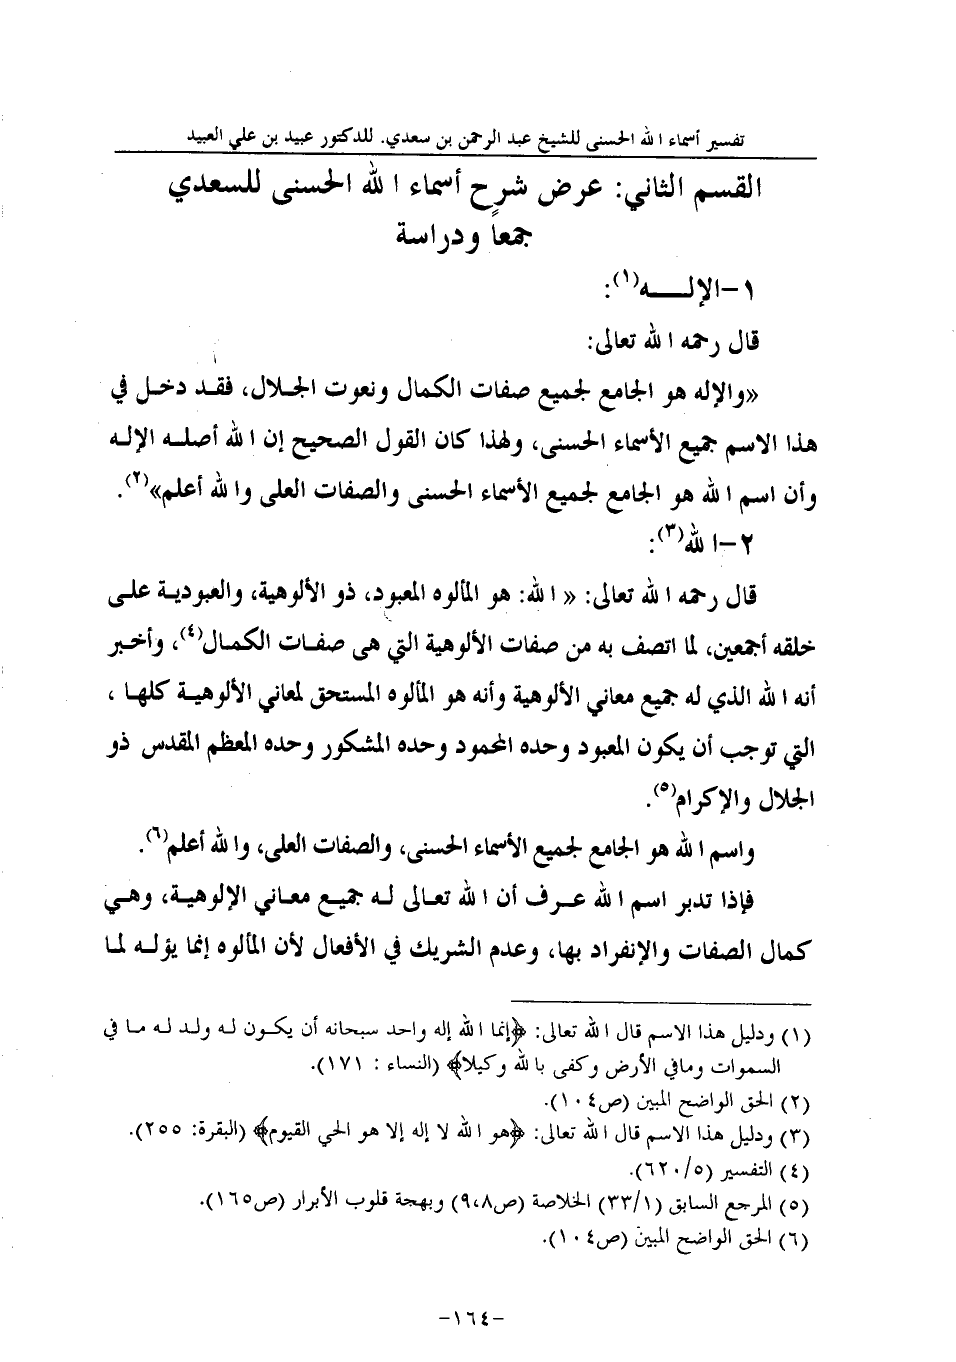 تفسير أسماء الله الحسنى للشيخ عبد الرحمن بن سعدي. للدكتور عبيد بن علي العبيد
القسم الثاني: عرض شرح أسماء الله الحسنى للسعدي
جمعاً ودراسة
١-الإلـــه(١):
قال رحمه الله تعالى:
«والإله هو الجامع لجميع صفات الكمال ونعوت الجلال، فقد دخل في
هذا الاسم جميع الأسماء الحسنى، ولهذا كان القول الصحيح إن الله أصله الإله
وأن اسم الله هو الجامع لجميع الأسماء الحسنى والصفات العلى والله أعلم»(٢).
٢-الله(٣):
قال رحمه الله تعالى: «الله: هو المألوه المعبود، ذو الألوهية، والعبودية على
خلقه أجمعين، لما اتصف به من صفات الألوهية التي هى صفات الكمال(٤)، وأخبر
أنه الله الذي له جميع معاني الألوهية وأنه هو المألوه المستحق لمعاني الألوهية كلها ،
التي توجب أن يكون المعبود وحده المحمود وحده المشكور وحده المعظم المقدس ذو
الجلال والإكرام(٥).
واسم الله هو الجامع لجميع الأسماء الحسنى، والصفات العلى، والله أعلم(٦).
فإذا تدبر اسم الله عرف أن الله تعالى له جميع معاني الإلوهية، وهي
كمال الصفات والإنفراد بها، وعدم الشريك في الأفعال لأن المألوه إنما يؤله لما
(١) ودليل هذا الاسم قال الله تعالى: ﴿إنما الله إله واحد سبحانه أن يكون له ولد له ما في
السموات ومافي الأرض وكفى بالله وكيلا﴾ (النساء : ١٧١).
(٢) الحق الواضح المبين (ص١٠٤).
(٣) ودليل هذا الاسم قال الله تعالى: ﴿هو الله لا إله إلا هو الحي القيوم﴾ (البقرة: ٢٥٥).
(٤) التفسير (٦٢٠/٥).
(٥) المرجع السابق (٣٣/١) الخلاصة (ص٩،٨) وبهجة قلوب الأبرار (ص١٦٥).
(٦) الحق الواضح المبين (ص١٠٤).
-١٦٤-